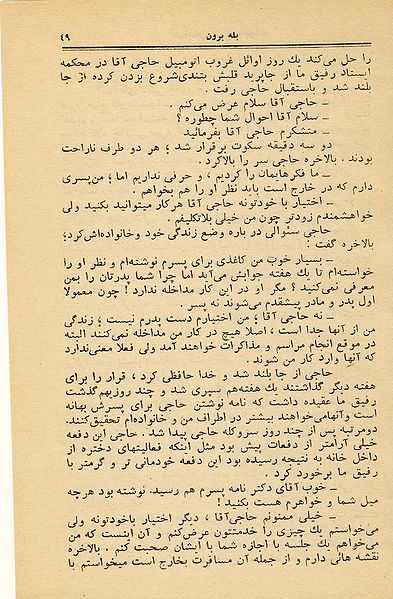 بله برون
۴۹
را حل می‌کند یك روز اوائل غروب اتومبیل حاجی آقا در محکمه
ایستاد رفیق ما از جاپرید قلبش بتندی‌شروع بزدن کرده از جا
بلند شد و باستقبال حاجی رفت .
ــ حاجی آقا سلام عرض می‌کنم .
ــ سلام آقا احوال شما چطوره ؟
ــ متشکرم حاجی آقا بفرمائید
دو سه دقیقه سکوت برقرار شد ؛ هر دو طرف ناراحت
بودند . بالاخره حاجی سر را بالاکرد .
ــ ما فکرهایمان را کردیم ، و حرفی نداریم اما ؛ من‌پسری
دارم که در خارج است باید نظر او را هم بخواهم .
ــ اختیار با خودتونه حاجی آقا هرکار میتوانید بکنید ولی
خواهشمندم زودتر چون من خیلی بلاتکلیفم .
حاجی سئوالی در باره وضع زندگی خود وخانواده‌اش‌کرد؛
بالاخره گفت :
ــ بسیار خوب من کاغذی برای پسرم نوشته‌ام و نظر او را
خواسته‌ام تا یك هفته جوابش می‌آید اما چرا شما پدرتان را بمن
معرفی نمی‌کنید ؟ مگر او در این کار مداخله ندارد ! چون معمولا
اول پدر و مادر پیشقدم می‌شوند نه پسر .
ــ نه حاجی آقا ؛ من اختیارم دست پدرم نیست ؛ زندگی
من از آنها جدا است ، اصلا هیچ در کار من مداخله نمی‌کنند. البته
در موقع انجام مراسم و مذاکرات خواهند آمد ولی فعلا معنی‌ندارد
که آنها وارد کار من شوند .
حاجی از جا بلند شد و خدا حافظی کرد ، قرار را برای
هفته دیگر گذاشتند یك هفته‌هم سپری شد و چند روزبهم‌گذشت
رفیق ما عقیده داشت که نامه نوشتن حاجی برای پسرش بهانه
است وآنهامی‌خواهند بیشتر در اطراف من و خانواده‌ام تحقیق‌کنند.
دومرتبه پس از چند روز سروکله حاجی پیدا شد . حاجی این دفعه
خیلی آرامتر از دفعات پیش بود مثل اینکه فعالیتهای دختره از
داخل خانه به نتیجه رسیده بود این دفعه خودمانی تر و گرمتر با
رفیق ما برخورد کرد .
ــ خوب آقای دکتر نامه پسرم هم رسید. نوشته بود هرچه
میل شما و خواهرم هست بکنید !
ــ خیلی ممنونم حاجی‌آقا ، دیگر اختیار باخودتونه ولی
می‌خواستم یك چیزی را خدمتتون عرض‌کنم و آن اینست که من
می‌خواهم یك جلسه با اجازه شما با ایشان صحبت کنم . بالاخره
نقشه هائی دارم و از جمله آن مسافرت بخارج است میخواستم با